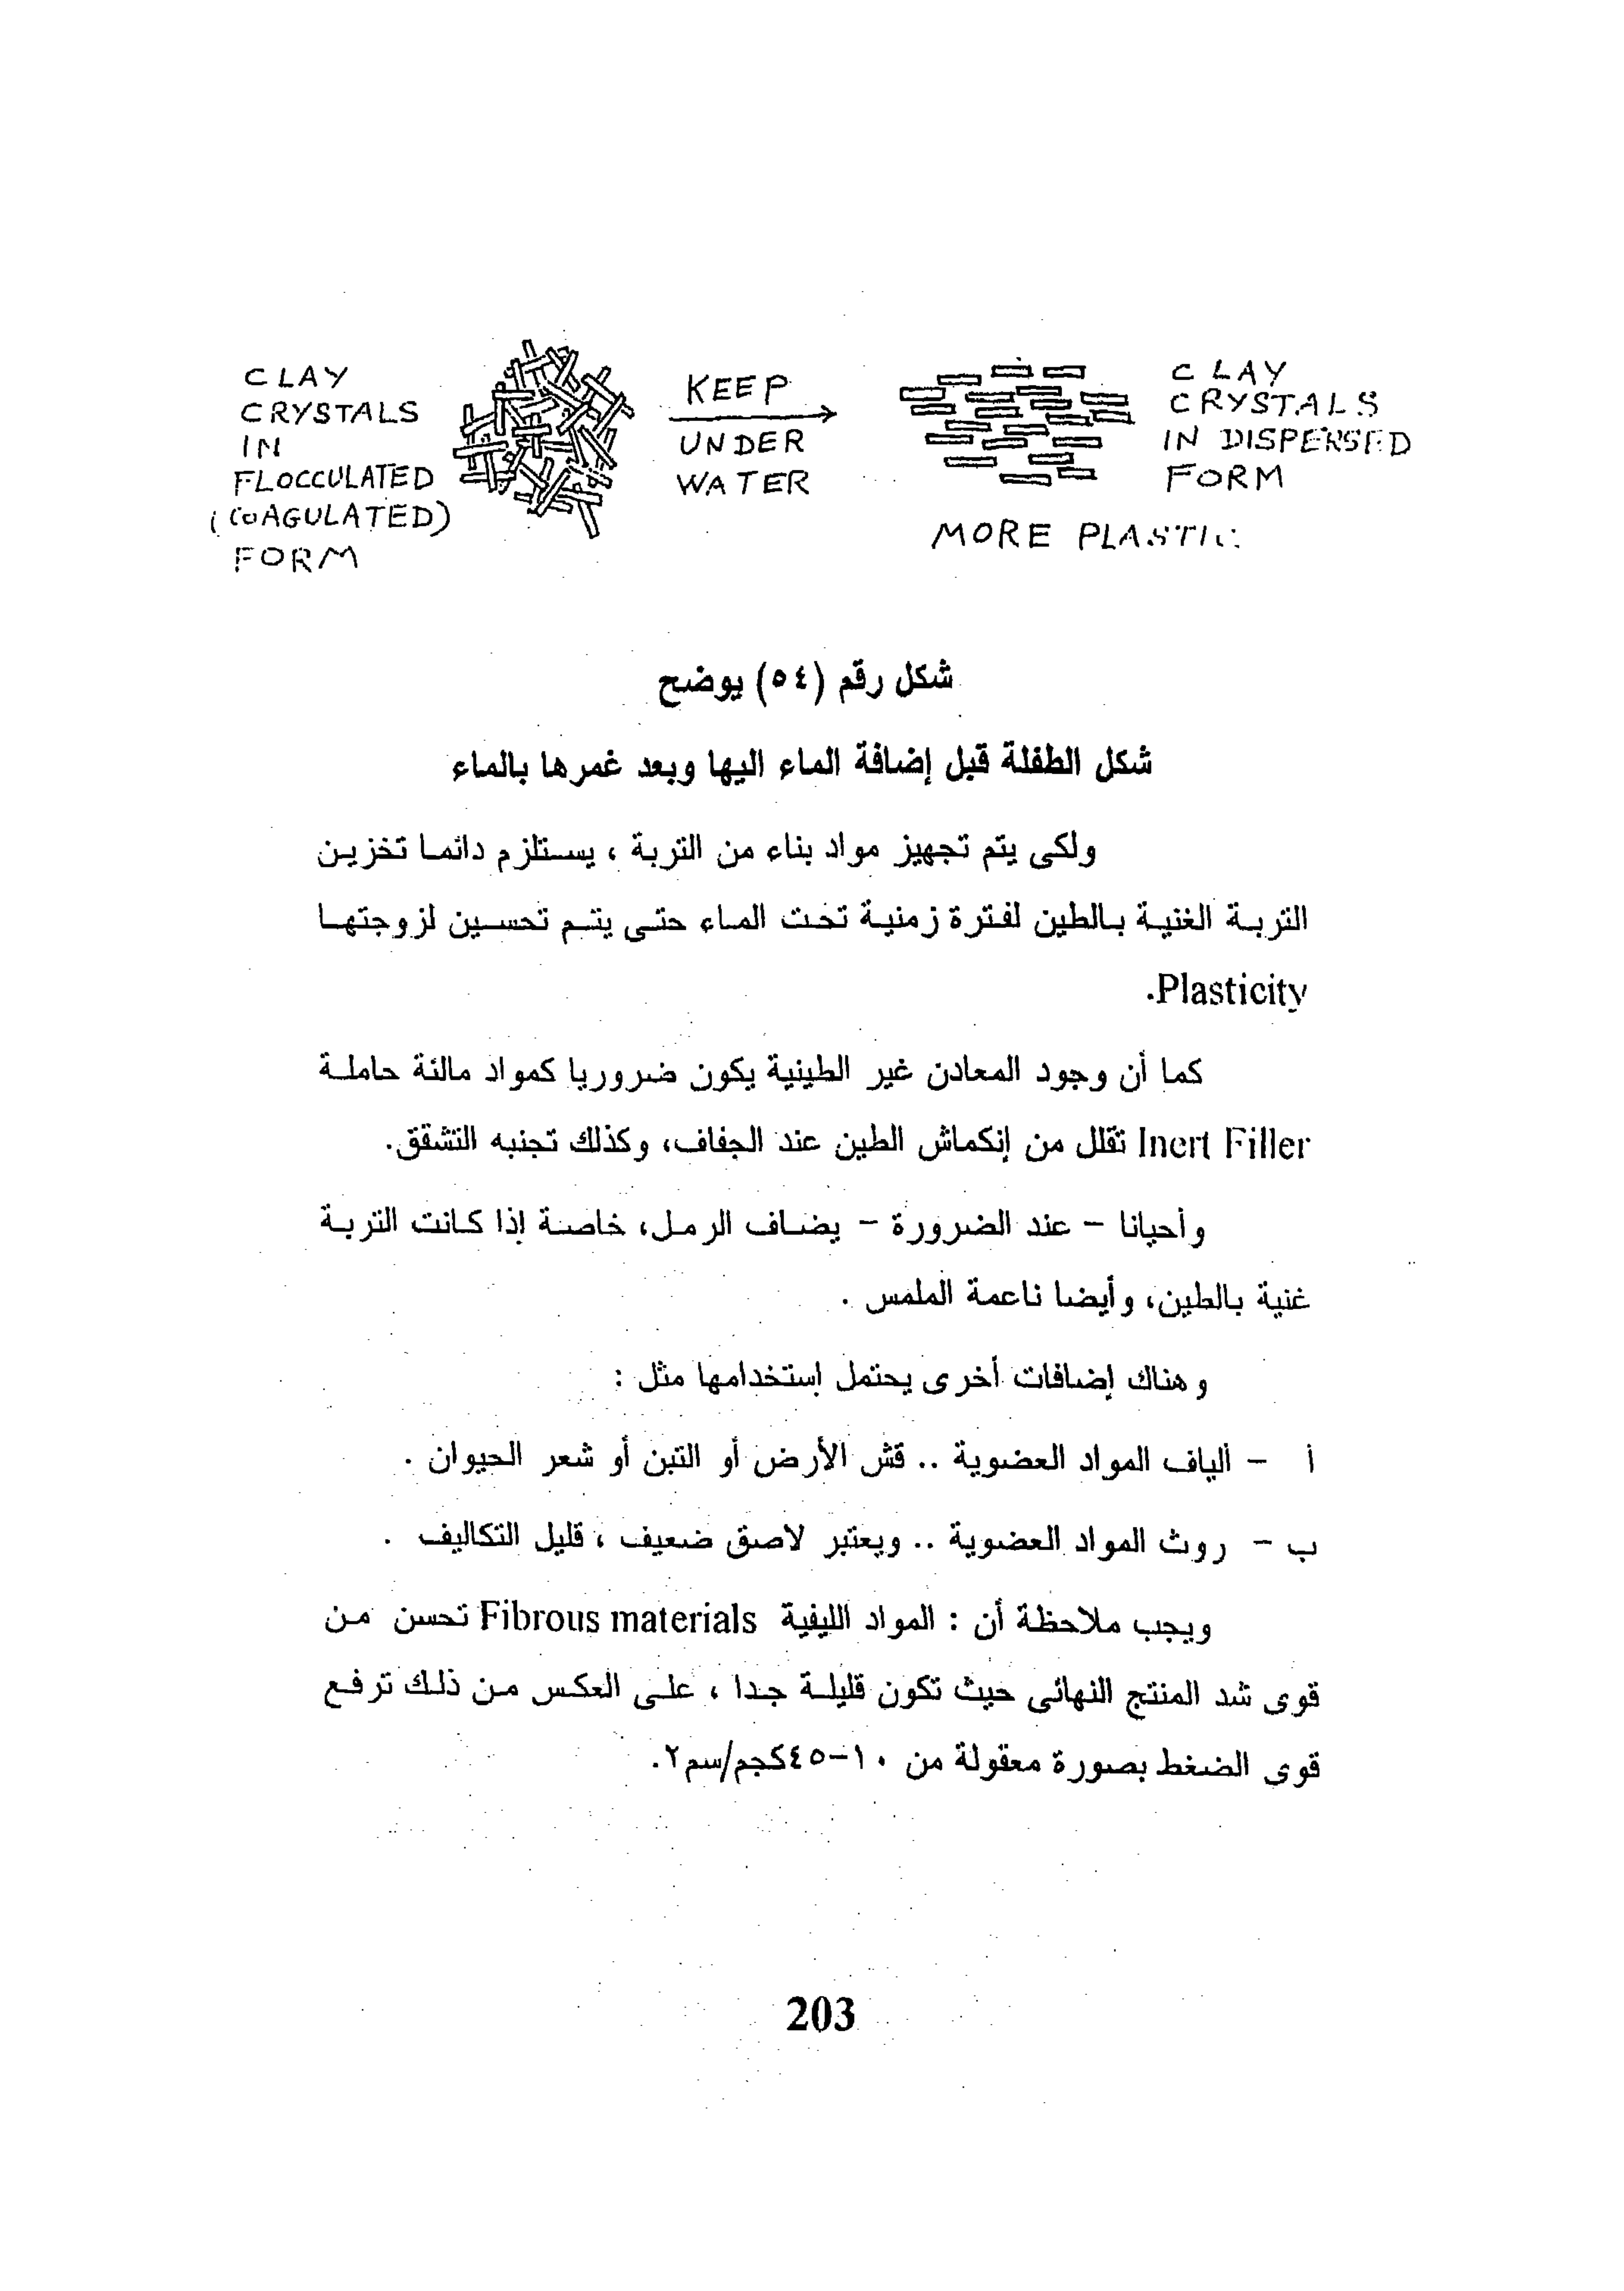 CLAY
CRYSTALS
IN
FLOCCULATED
(COAGULATED)
FORM
KEEP
UNDER
WATER
CLAY
CRYSTALS
IN DISPERSED
FORM
MORE PLASTIC
شكل رقم (٥٤) يوضح
شكل الطفلة قبل إضافة الماء اليها وبعد غمرها بالماء
ولكى يتم تجهيز مواد بناء من التربة ، يستلزم دائما تخزين
التربة الغنية بالطين لفترة زمنية تحت الماء حتى يتم تحسين لزوجتها
Plasticity.
كما أن وجود المعادن غير الطينية يكون ضروريا كمواد مالئة حاملة
Inert Filler تقلل من إنكماش الطين عند الجفاف، وكذلك تجنبه التشقق.
وأحيانا – عند الضرورة – يضاف الرمل، خاصة إذا كانت التربة
غنية بالطين، وأيضا ناعمة الملمس .
وهناك إضافات أخرى يحتمل إستخدامها مثل :
أ – ألياف المواد العضوية .. قش الأرض أو التبن أو شعر الحيوان .
ب – روث المواد العضوية .. ويعتبر لاصق ضعيف ، قليل التكاليف .
ويجب ملاحظة أن : المواد الليفية Fibrous materials تحسن من
قوى شد المنتج النهائى حيث تكون قليلة جدا ، على العكس من ذلك ترفع
قوى الضغط بصورة معقولة من ١٠–٤٥كجم/سم٢.
203